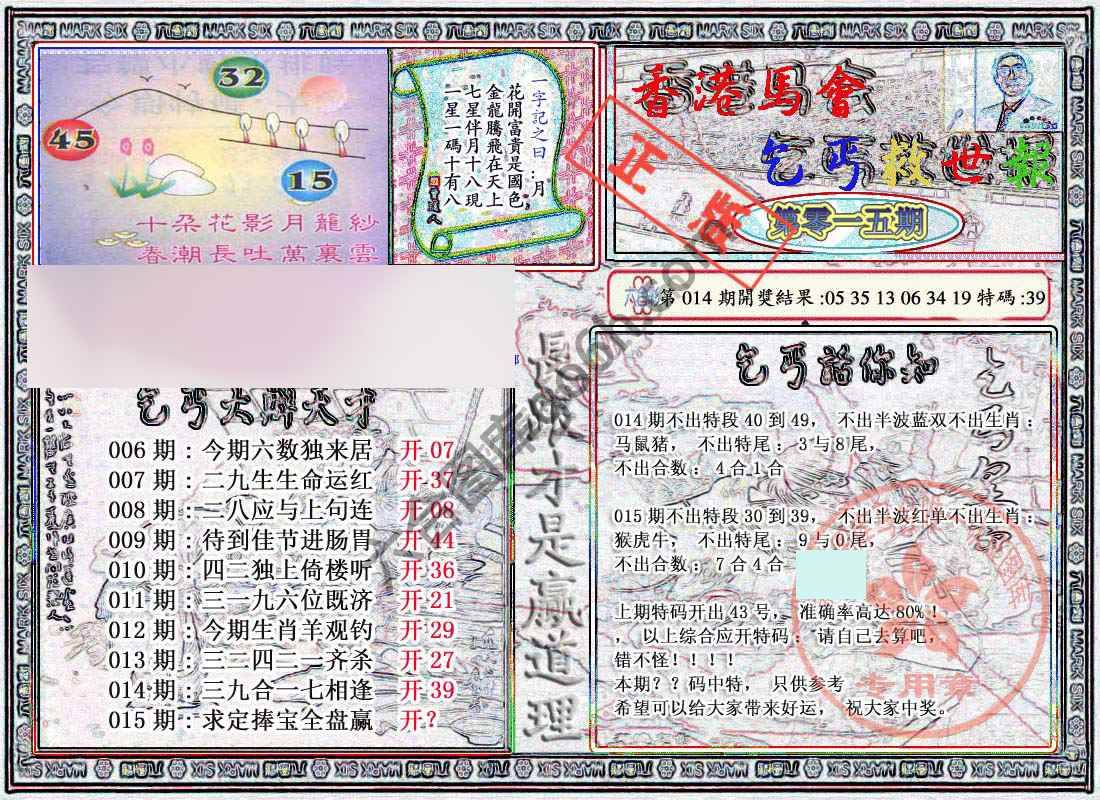 32
45
15
十朵花影月籠紗
春潮長吐萬裏雲
一字記之曰：月
花開富貴是國色
金龍騰飛在天上
七星伴月十八現
一星一碼十有八
曾道人
香港馬會
乞丐救世報
第零一五期
正版
六合彩 第014期開獎結果:05 35 13 06 34 19 特碼:39
006期：今期六数独来居 开07
007期：二九生生命运红 开37
008期：三八应与上句连 开08
009期：待到佳节进肠胃 开44
010期：四二独上倚楼听 开36
011期：三一九六位既济 开21
012期：今期生肖羊观钓 开29
013期：三二四二一齐杀 开27
014期：三九合一七相逢 开39
015期：求定捧宝全盘赢 开？
才是赢道理
乞丐話你知
014期不出特段40到49， 不出半波蓝双不出生肖：
马鼠猪， 不出特尾：3与8尾，
不出合数：4合1合
015期不出特段30到39， 不出半波红单不出生肖：
猴虎牛， 不出特尾：9与0尾，
不出合数：7合4合
上期特码开出43号， 准确率高达80%！
， 以上综合应开特码： 请自己去算吧，
错不怪！！！！
本期？？码中特， 只供参考
希望可以给大家带来好运， 祝大家中奖。
专用章
MARK SIX